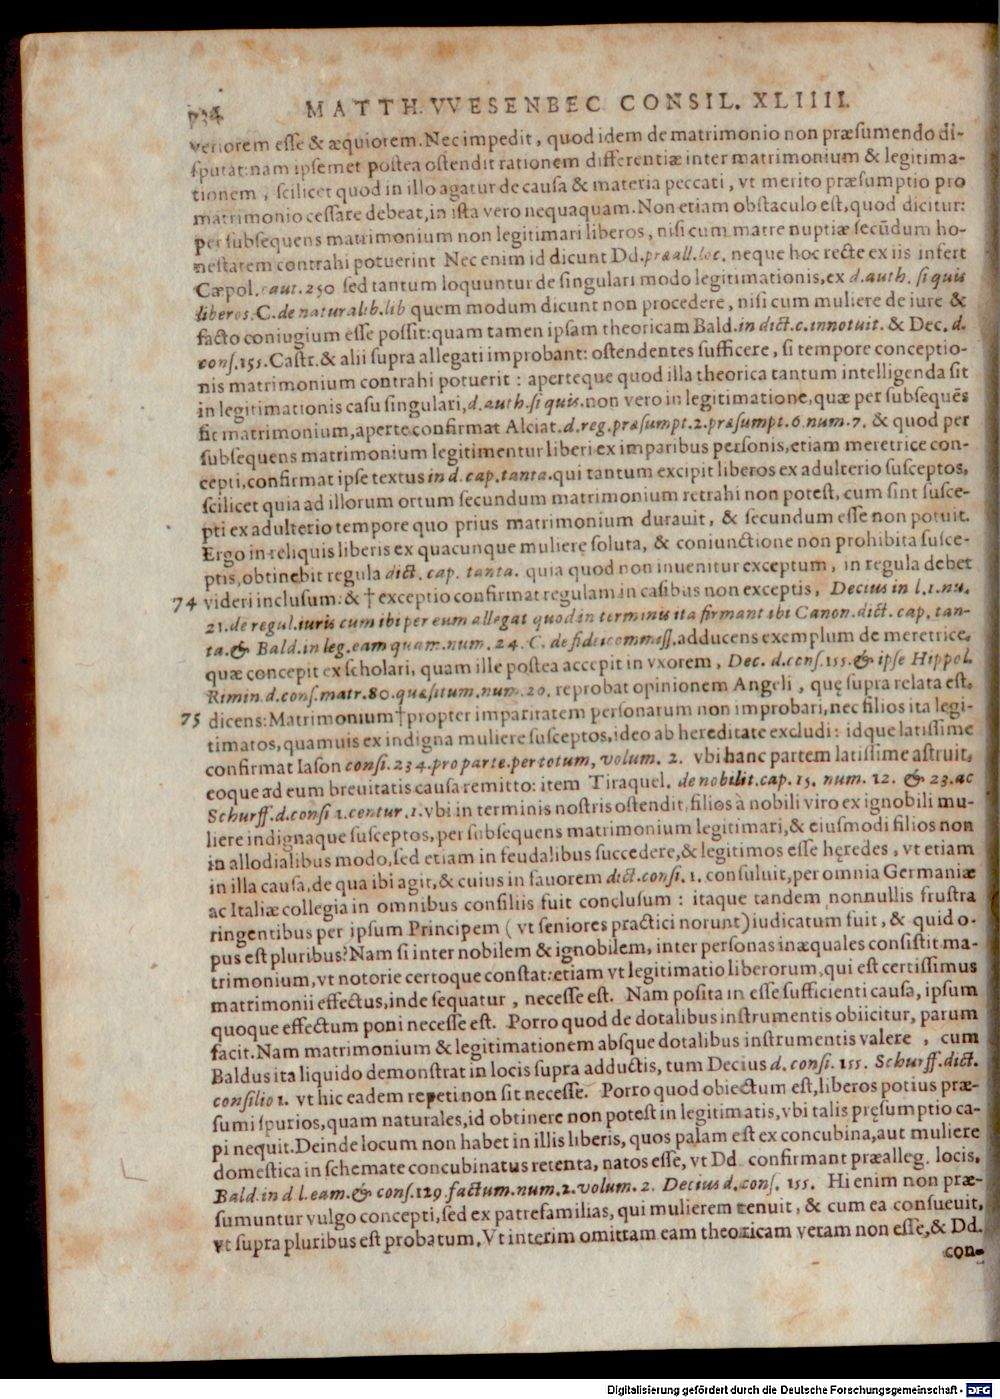 734 MATTH. VVESENBEC CONSIL. XLIIII.
veriorem esse & æquiorem. Nec impedit, quod idem de matrimonio non præsumendo di-
sputat: nam ipsemet postea ostendit rationem differentiæ inter matrimonium & legitima-
tionem, scilicet quod in illo agatur de causa & materia peccati, vt merito præsumptio pro
matrimonio cessare debeat, in ista vero nequaquam. Non etiam obstaculo est, quod dicitur:
per subsequens matrimonium non legitimari liberos, nisi cum matre nuptiæ secūdum ho-
nestatem contrahi potuerint Nec enim id dicunt Dd. præall. loc. neque hoc recte ex iis infert
Cæpol. caut. 250 sed tantum loquuntur de singulari modo legitimationis, ex d. auth. si quis
liberos. C. de naturalib. lib quem modum dicunt non procedere, nisi cum muliere de iure &
facto coniugium esse possit: quam tamen ipsam theoricam Bald. in dict. c. innotuit. & Dec. d.
cons. 155. Castr. & alii supra allegati improbant: ostendentes sufficere, si tempore conceptio-
nis matrimonium contrahi potuerit: aperteque quod illa theorica tantum intelligenda sit
in legitimationis casu singulari, d. auth. si quis. non vero in legitimatione, quæ per subsequēs
fit matrimonium, aperte confirmat Alciat. d. reg. præsumpt. 2. præsumpt. 6. num. 7. & quod per
subsequens matrimonium legitimentur liberi ex imparibus personis, etiam meretrice con-
cepti, confirmat ipse textus in d. cap. tanta. qui tantum excipit liberos ex adulterio susceptos,
scilicet quia ad illorum ortum secundum matrimonium retrahi non potest, cum sint susce-
pti ex adulterio tempore quo prius matrimonium durauit, & secundum esse non potuit.
Ergo in reliquis liberis ex quacunque muliere soluta, & coniunctione non prohibita susce-
ptis, obtinebit regula dict. cap. tanta. quia quod non inuenitur exceptum, in regula debet
74 videri inclusum: & † exceptio confirmat regulam in casibus non exceptis, Decius in l. 1. nu.
21. de regul. iuris cum ibi per eum allegat quod in terminis ita firmant ibi Canon. dict. cap. tan-
ta. & Bald. in leg. eam quam. num. 24. C. de fideicommiss. adducens exemplum de meretrice,
quæ concepit ex scholari, quam ille postea accepit in vxorem, Dec. d. cons. 155. & ipse Hippol.
Rimin. d. cons. matr. 80. quæsitum. num. 20. reprobat opinionem Angeli, quę supra relata est.
75 dicens: Matrimonium † propter imparitatem personarum non improbari, nec filios ita legi-
timatos, quamuis ex indigna muliere susceptos, ideo ab hereditate excludi: idque latissime
confirmat Iason consi. 234. pro parte. per totum, volum. 2. vbi hanc partem latissime astruit,
eoque ad eum breuitatis causa remitto: item Tiraquel. de nobilit. cap. 15. num. 12. & 23. ac
Schurff. d. consi 1. centur. 1. vbi in terminis nostris ostendit, filios à nobili viro ex ignobili mu-
liere indignaque susceptos, per subsequens matrimonium legitimari, & eiusmodi filios non
in allodialibus modo, sed etiam in feudalibus succedere, & legitimos esse hęredes, vt etiam
in illa causa, de qua ibi agit, & cuius in fauorem dict. consi. 1. consuluit, per omnia Germaniæ
ac Italiæ collegia in omnibus consiliis fuit conclusum: itaque tandem nonnullis frustra
ringentibus per ipsum Principem (vt seniores practici norunt) iudicatum fuit, & quid o-
pus est pluribus? Nam si inter nobilem & ignobilem, inter personas inæquales consistit ma-
trimonium, vt notorie certoque constat: etiam vt legitimatio liberorum, qui est certissimus
matrimonii effectus, inde sequatur, necesse est. Nam posita in esse sufficienti causa, ipsum
quoque effectum poni necesse est. Porro quod de dotalibus instrumentis obiicitur, parum
facit. Nam matrimonium & legitimationem absque dotalibus instrumentis valere, cum
Baldus ita liquido demonstrat in locis supra adductis, tum Decius d. consi. 155. Schurff. dict.
consilio 1. vt hic eadem repeti non sit necesse. Porro quod obiectum est, liberos potius præ-
sumi spurios, quam naturales, id obtinere non potest in legitimatis, vbi talis pręsumptio ca-
pi nequit. Deinde locum non habet in illis liberis, quos palam est ex concubina, aut muliere
domestica in schemate concubinatus retenta, natos esse, vt Dd confirmant præalleg. locis,
Bald. in d l. eam. & cons. 129. factum. num. 2. volum. 2. Decius d. cons. 155. Hi enim non præ-
sumuntur vulgo concepti, sed ex patrefamilias, qui mulierem tenuit, & cum ea consueuit,
vt supra pluribus est probatum, Vt interim omittam eam theoricam veram non esse, & Dd.
con-
Digitalisierung gefördert durch die Deutsche Forschungsgemeinschaft - DFG